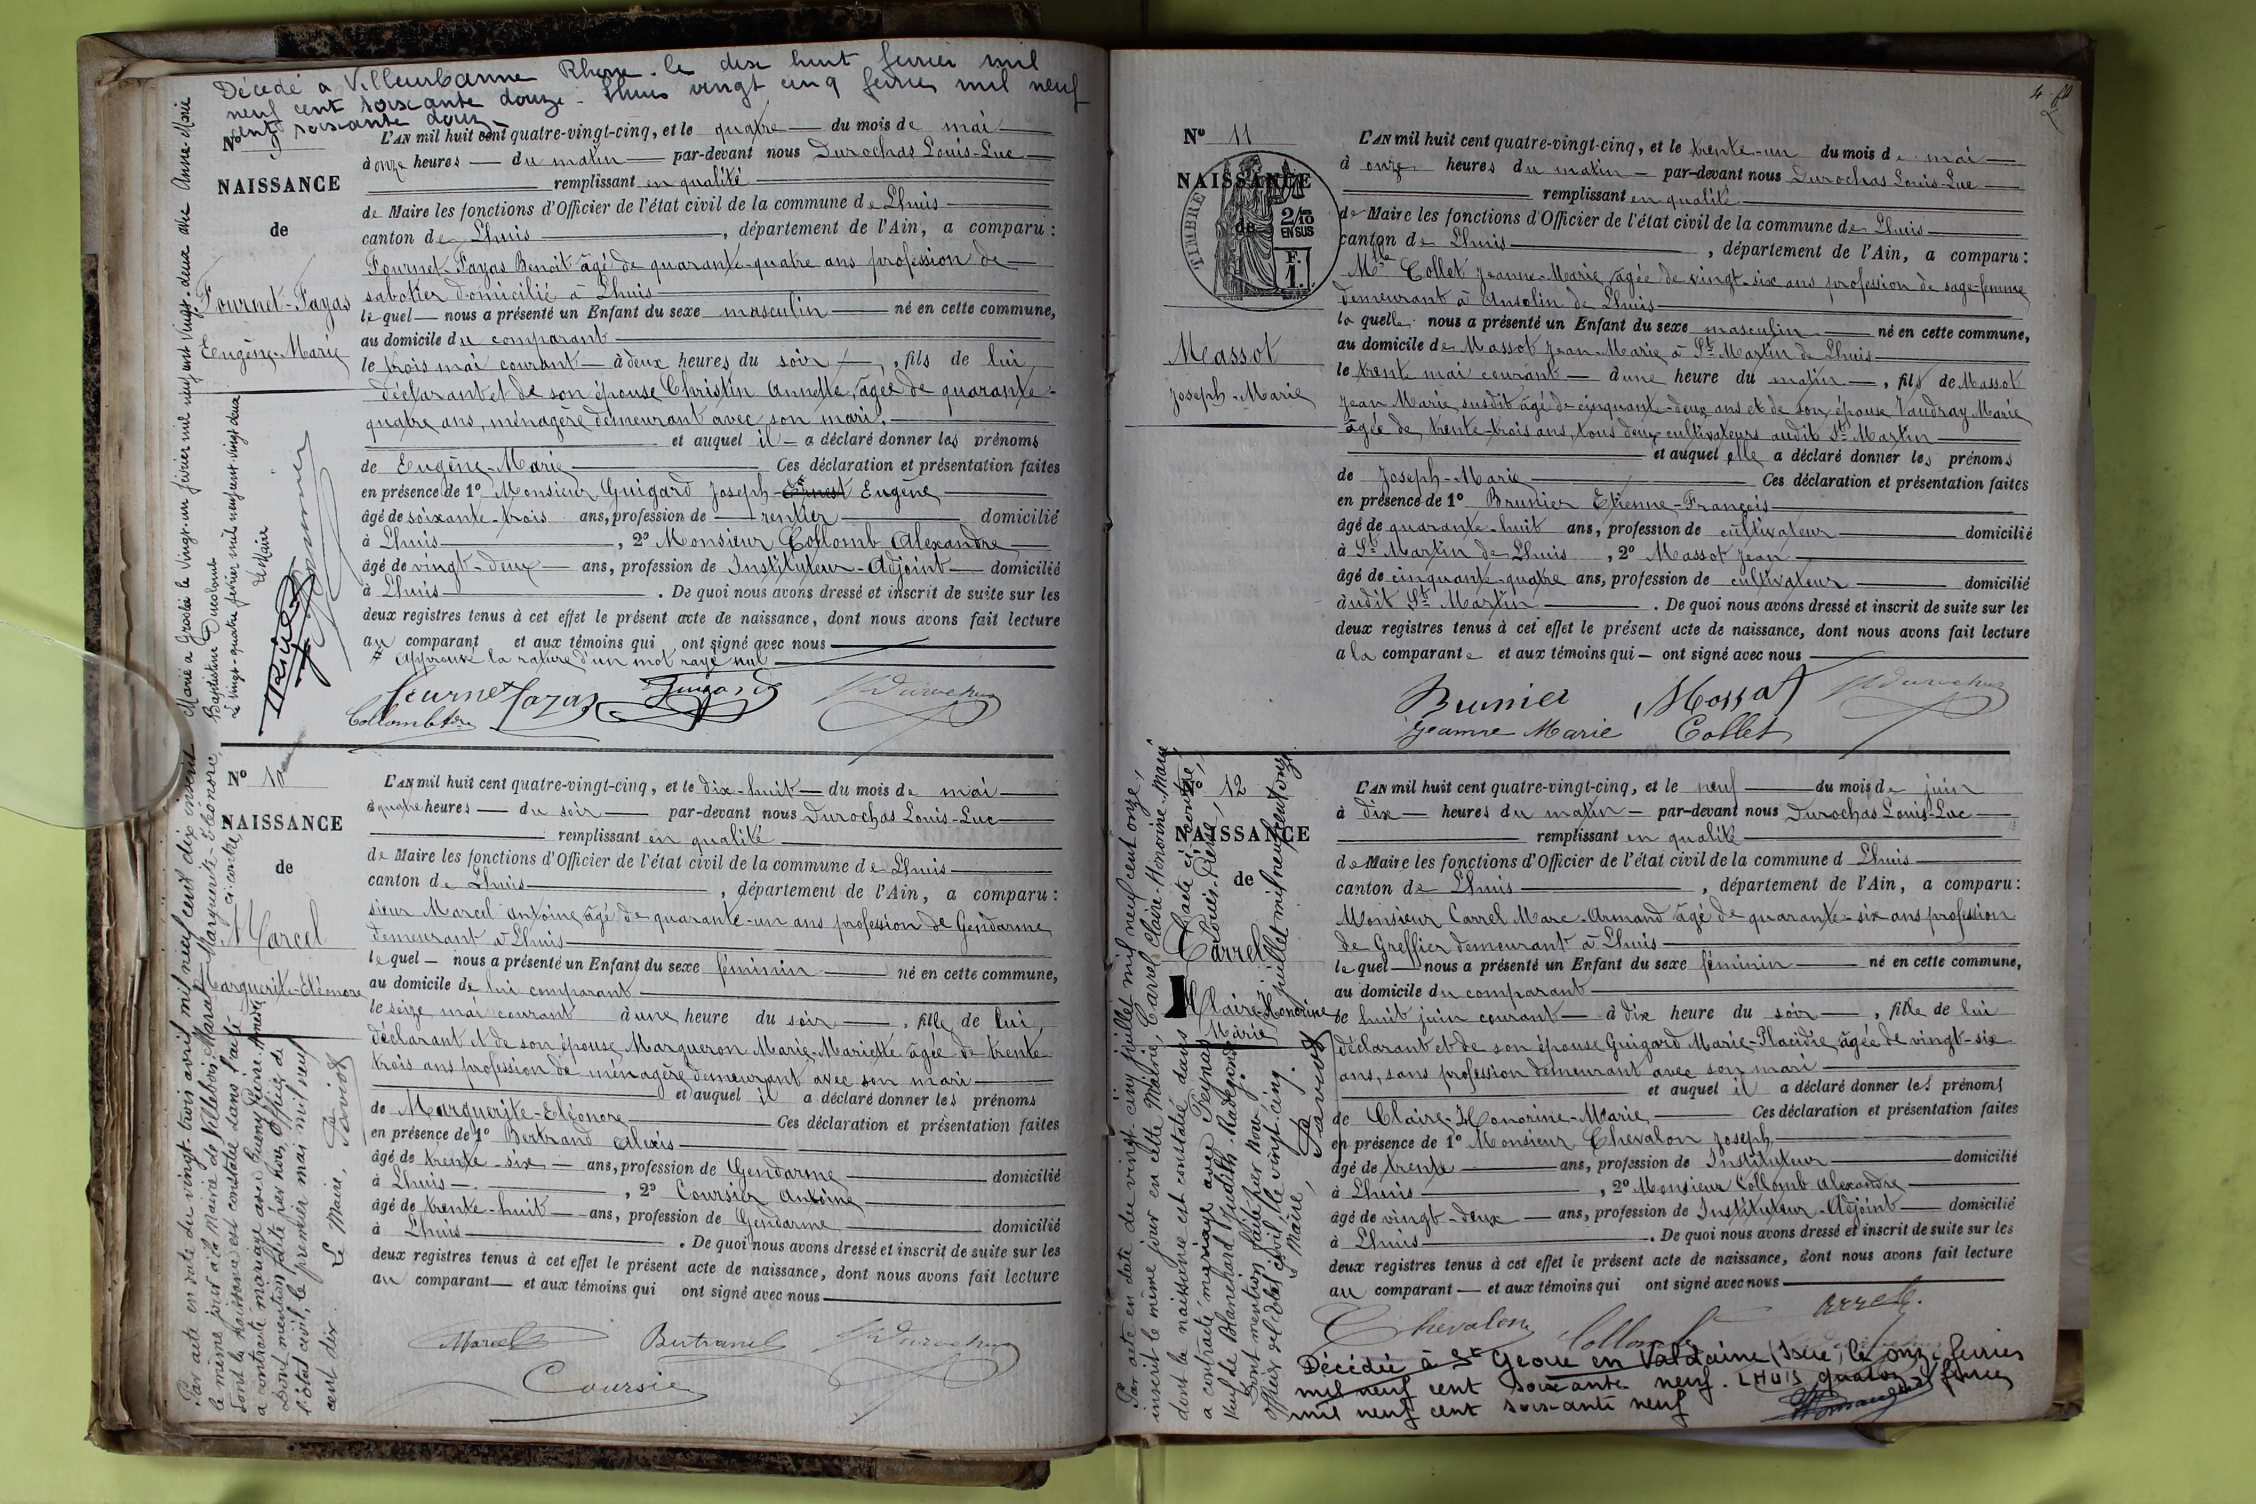 Décédé a Villeurbanne Rhône le dix huit fevrier mil
neuf cent soixante douze. Lhuis vingt cinq fevrier mil neuf
cent soixante douze
N° 9
NAISSANCE
de
Fournet-Fayas
Eugène-Marie
Marié à Groslée le vingt-un février mil neuf cent vingt-deux avec Anne-Marie
Baptistine Ducolomb
Le vingt-quatre février mil neuf cent vingt deux
Le Maire
L'AN mil huit cent quatre-vingt-cinq, et le quatre du mois de mai
à onze heures du matin par-devant nous Durochas Louis-Luc
remplissant en qualité
de Maire les fonctions d'Officier de l'état civil de la commune de Lhuis
canton de Lhuis, département de l'Ain, a comparu :
Fournet-Fayas Benoît âgé de quarante-quatre ans profession de
sabotier domicilié à Lhuis
lequel nous a présenté un Enfant du sexe masculin né en cette commune,
au domicile du comparant
le trois mai courant à deux heures du soir, fils de lui
déclarant et de son épouse Christin Annette, âgée de quarante-
quatre ans, ménagère demeurant avec son mari.
et auquel il a déclaré donner les prénoms
de Eugène-Marie Ces déclaration et présentation faites
en présence de 1° Monsieur Guigard Joseph Ernest Eugène
âgé de soixante-trois ans, profession de rentier domicilié
à Lhuis, 2° Monsieur Collomb Alexandre
âgé de vingt-deux ans, profession de Instituteur-Adjoint domicilié
à Lhuis. De quoi nous avons dressé et inscrit de suite sur les
deux registres tenus à cet effet le présent acte de naissance, dont nous avons fait lecture
au comparant et aux témoins qui ont signé avec nous
Approuvé la rature d'un mot rayé nul
Fournet Fayas Guigard Durochas
Collomb Adre
N° 10
NAISSANCE
de
Marcel
Marguerite-Eléonore
Par acte en date du vingt-trois avril mil neuf cent dix inscrit
le même jour à la Mairie de Villebois, Marcel Marguerite-Eléonore,
dont la naissance est constatée dans l'acte ci-contre
a contracté mariage avec
Dont mention faite par nous, Officier de
l'état civil, le premier mai mil neuf
cent dix. Le Maire,
L'AN mil huit cent quatre-vingt-cinq, et le dix-huit du mois de mai
à quatre heures du soir par-devant nous Durochas Louis-Luc
remplissant en qualité
de Maire les fonctions d'Officier de l'état civil de la commune de Lhuis
canton de Lhuis, département de l'Ain, a comparu :
sieur Marcel Antoine, âgé de quarante-un ans profession de Gendarme
demeurant à Lhuis
lequel nous a présenté un Enfant du sexe féminin né en cette commune,
au domicile de lui comparant
le seize mai courant à une heure du soir, fille de lui
déclarant et de son épouse Margueron Marie-Mariette âgée de trente
trois ans profession de ménagère demeurant avec son mari
et auquel il a déclaré donner les prénoms
de Marguerite-Eléonore Ces déclaration et présentation faites
en présence de 1° Bertrand Alexis
âgé de trente-six ans, profession de Gendarme domicilié
à Lhuis, 2° Coursier Antoine
âgé de trente-huit ans, profession de Gendarme domicilié
à Lhuis. De quoi nous avons dressé et inscrit de suite sur les
deux registres tenus à cet effet le présent acte de naissance, dont nous avons fait lecture
au comparant et aux témoins qui ont signé avec nous
Marcel Bertrand Durochas
Coursier
4
N° 11
NAISSANCE
de
TIMBRE
2/10
EN SUS
F.
1.
Massot
Joseph-Marie
L'AN mil huit cent quatre-vingt-cinq, et le trente-un du mois de mai
à onze heures du matin par-devant nous Durochas Louis-Luc
remplissant en qualité
de Maire les fonctions d'Officier de l'état civil de la commune de Lhuis
canton de Lhuis, département de l'Ain, a comparu :
Mlle Collet Jeanne-Marie, âgée de vingt-six ans profession de sage-femme
demeurant à Ansolin de Lhuis
laquelle nous a présenté un Enfant du sexe masculin né en cette commune,
au domicile de Massot Jean-Marie à St Martin de Lhuis
le trente mai courant à une heure du matin, fils de Massot
Jean Marie susdit âgé de cinquante-deux ans et de son épouse Vaudray Marie
âgée de trente-trois ans, tous deux cultivateurs audit St Martin
et auquel elle a déclaré donner les prénoms
de Joseph-Marie Ces déclaration et présentation faites
en présence de 1° Brunier Etienne-François
âgé de quarante-huit ans, profession de cultivateur domicilié
à St Martin de Lhuis, 2° Massot Jean
âgé de cinquante-quatre ans, profession de cultivateur domicilié
àudit St Martin. De quoi nous avons dressé et inscrit de suite sur les
deux registres tenus à cet effet le présent acte de naissance, dont nous avons fait lecture
a la comparante et aux témoins qui ont signé avec nous
Brunier Massot Durochas
Jeanne Marie Collet
N° 12
NAISSANCE
de
Carrel
Claire-Honorine
Marie
Par acte en date du vingt-cinq juillet mil neuf cent onze,
inscrit le même jour en cette Mairie, Carrel Claire-Honorine-Marie
dont la naissance est constatée dans l'acte ci-contre,
a contracté mariage avec Peynas Louis-Pierre,
veuf de Blanchard Judith-Radegonde.
Dont mention faite par nous,
officier de l'état civil, le vingt-cinq juillet mil neuf cent onze
Le Maire,
L'AN mil huit cent quatre-vingt-cinq, et le neuf du mois de juin
à dix heures du matin par-devant nous Durochas Louis-Luc
remplissant en qualité
de Maire les fonctions d'Officier de l'état civil de la commune d Lhuis
canton de Lhuis, département de l'Ain, a comparu :
Monsieur Carrel Marc-Armand âgé de quarante-six ans profession
de Greffier demeurant à Lhuis
lequel nous a présenté un Enfant du sexe féminin né en cette commune,
au domicile du comparant
le huit juin courant à dix heure du soir, fille de lui
déclarant et de son épouse Guigard Marie-Placidie, âgée de vingt-six
ans, sans profession demeurant avec son mari
et auquel il a déclaré donner les prénoms
de Claire-Honorine-Marie Ces déclaration et présentation faites
en présence de 1° Monsieur Chevalon Joseph
âgé de trente ans, profession de Instituteur domicilié
à Lhuis, 2° Monsieur Collomb Alexandre
âgé de vingt-deux ans, profession de Instituteur-Adjoint domicilié
à Lhuis. De quoi nous avons dressé et inscrit de suite sur les
deux registres tenus à cet effet le présent acte de naissance, dont nous avons fait lecture
au comparant et aux témoins qui ont signé avec nous
Chevalon Collomb Carrel
Décédée à St Geoire en Valdaine (Isère) le onze fevrier
mil neuf cent soixante neuf. LHUIS quatorze fevrier
mil neuf cent soixante neuf